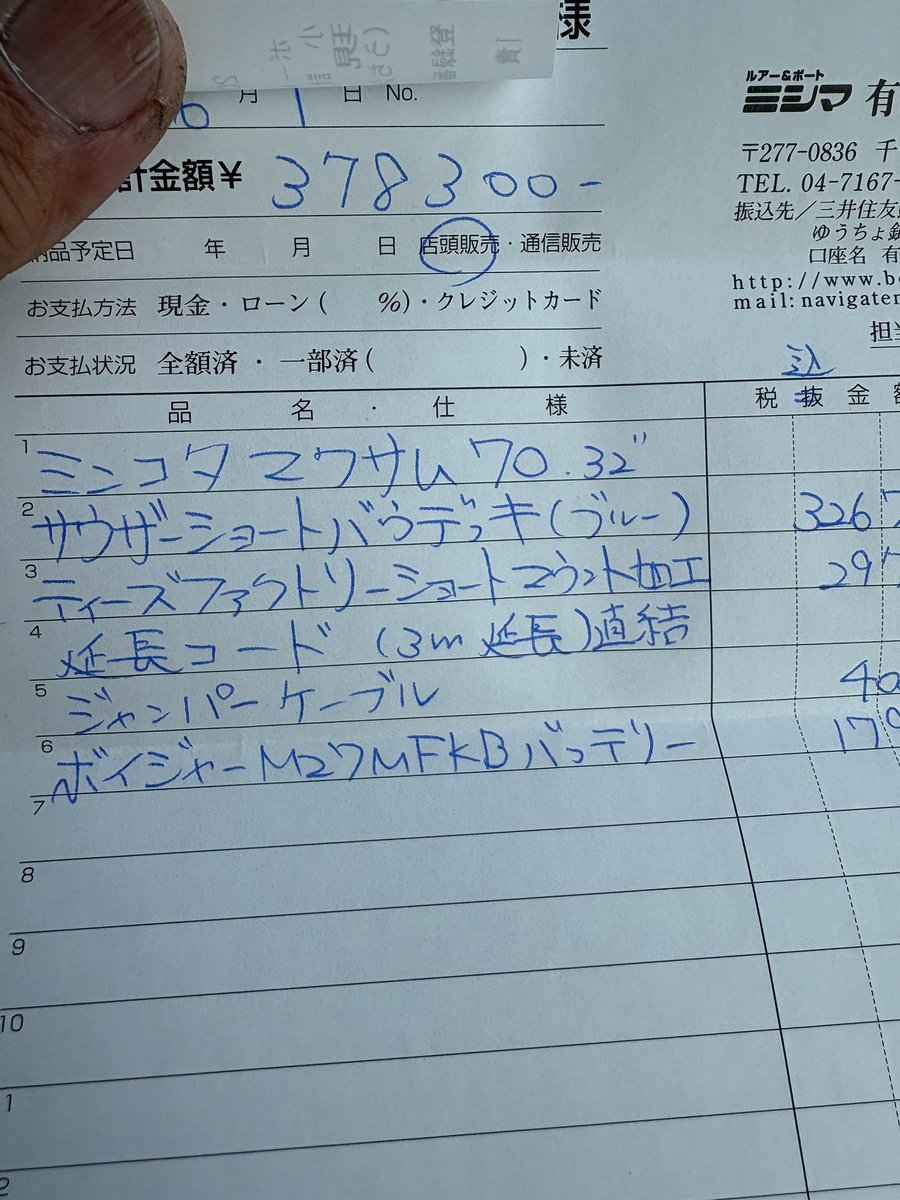 様
月 1 日 No.
計金額¥ 378300-
納品予定日 年 月 日 店頭販売・通信販売
お支払方法 現金・ローン( %)・クレジットカード
お支払状況 全額済・一部済( )・未済
ルアー&ボート
ミシマ 有
〒277-0836 千
TEL. 04-7167-
振込先/三井住友
ゆうちょ銀
口座名 有
http://www.b
mail:navigate
担当
込
品名・仕様 税抜金額
1 ミンコタマクサム70.32"
2 サウザーショートバウデッキ(ブルー) 3267
3 ティーズファクトリーショートマウント加工 297
4 延長コード(3m延長)直結
5 ジャンパーケーブル 40
6 ボイジャーM27MFKBバッテリー 179
7
8
9
10
1
2